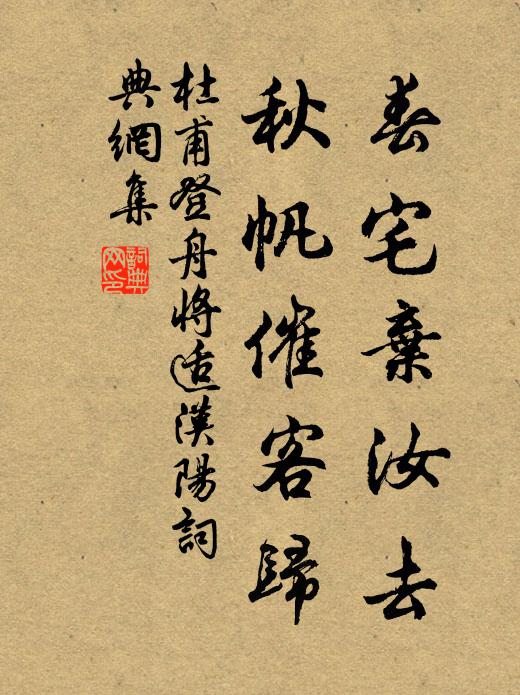 春宅棄汝去
秋帆催客歸
杜甫登舟將适漢陽詞
典網集
詞典
网印